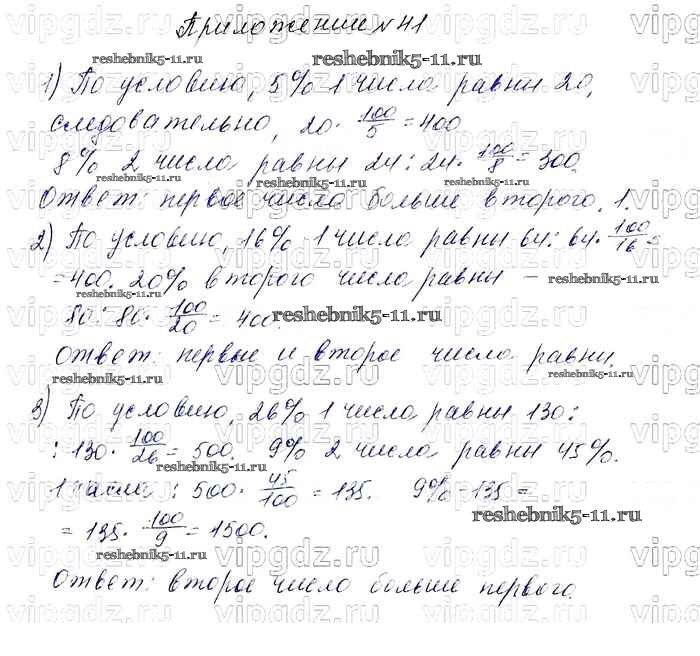 Приложение № 41
1) По условию, 5% 1 числа равны 20,
следовательно, 20 · 100/5 = 400
8% 2 числа равны 24: 24 · 100/8 = 300.
Ответ: первое число больше второго.
2) По условию, 16% 1 числа равны 64: 64 · 100/16 =
= 400. 20% второго числа равны –
80: 80 · 100/20 = 400.
Ответ: первые и второе числа равны.
3) По условию, 26% 1 числа равны 130:
: 130 · 100/26 = 500. 9% 2 числа равны 45%.
1 числа: 500 · 45/100 = 135. 9% = 135 =
= 135 · 100/9 = 1500.
Ответ: второе число больше первого.
reshebnik5-11.ru
vipgdz.ru